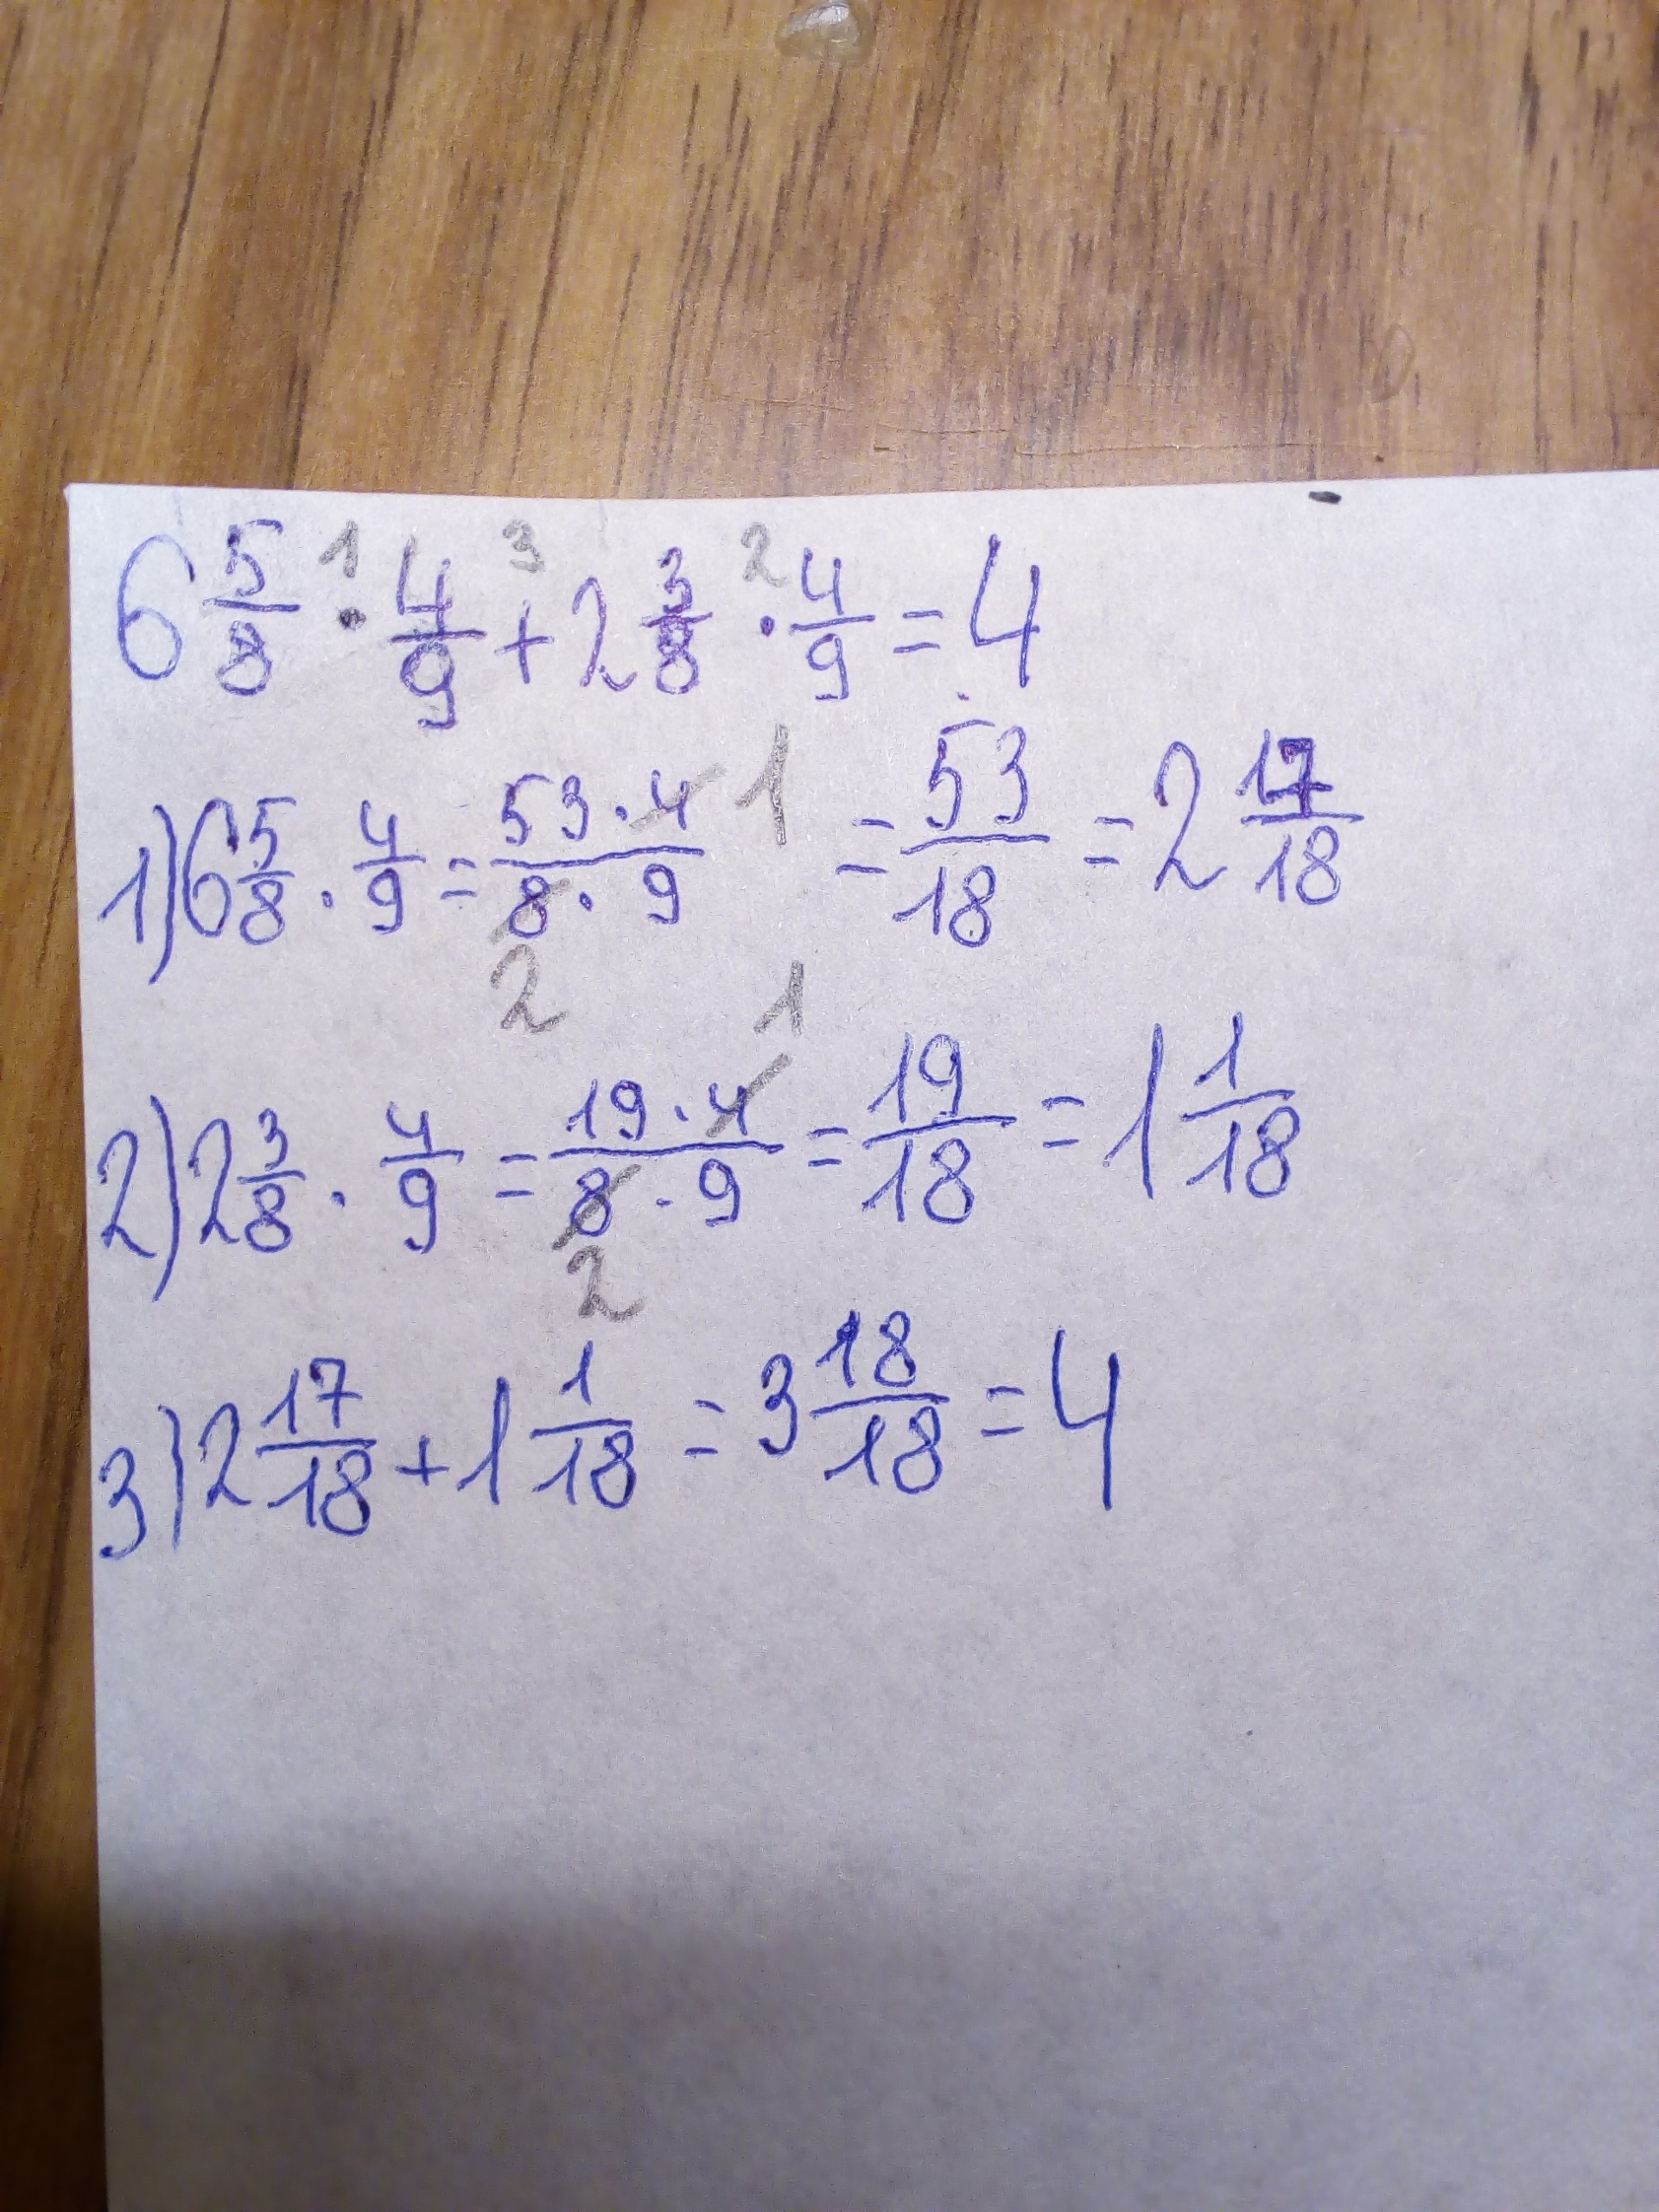 6 5/8 · 4/9 + 2 3/8 · 4/9 = 4
1) 6 5/8 · 4/9 = 53·4/8·9 = 53/18 = 2 17/18
2) 2 3/8 · 4/9 = 19·4/8·9 = 19/18 = 1 1/18
3) 2 17/18 + 1 1/18 = 3 18/18 = 4